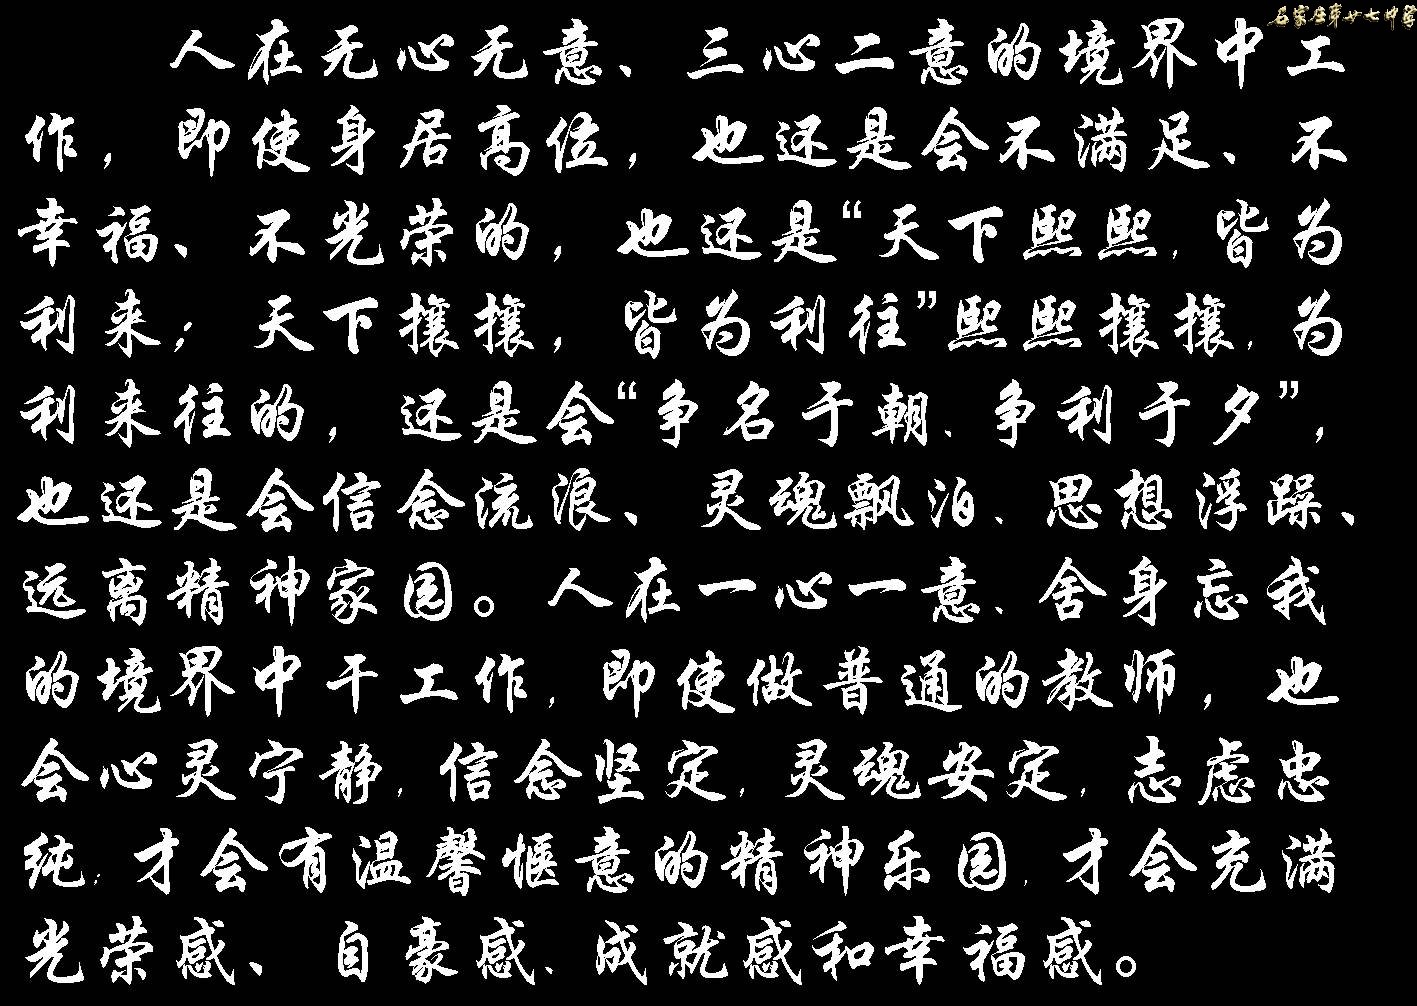 石家庄第廿七中学
人在无心无意、三心二意的境界中工
作，即使身居高位，也还是会不满足、不
幸福、不光荣的，也还是“天下熙熙，皆为
利来；天下攘攘，皆为利往”熙熙攘攘，为
利来往的，还是会“争名于朝、争利于夕”，
也还是会信念流浪、灵魂飘泊、思想浮躁、
远离精神家园。人在一心一意、舍身忘我
的境界中干工作，即使做普通的教师，也
会心灵宁静，信念坚定，灵魂安定，志虑忠
纯；才会有温馨惬意的精神乐园，才会充满
光荣感、自豪感、成就感和幸福感。